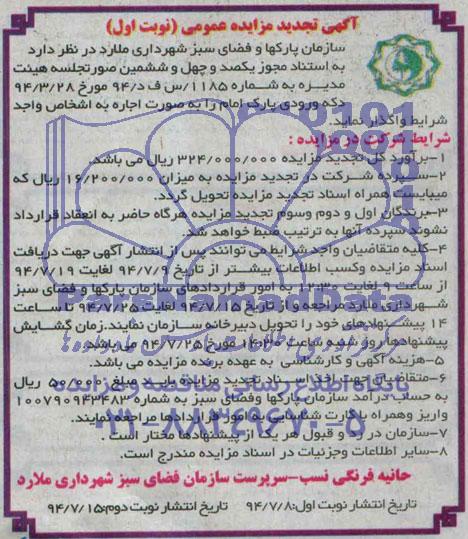 آگهی تجدید مزایده عمومی (نوبت اول)
سازمان پارکها و فضای سبز شهرداری ملارد در نظر دارد
به استناد مجوز یکصد و چهل و ششمین صورتجلسه هیئت
مدیره به شماره ۱۱۸۵/س ف د/۹۴ مورخ ۹۴/۳/۲۸
دکه ورودی پارک امام را به صورت اجاره به اشخاص واجد
شرایط واگذار نماید.
شرایط شرکت در مزایده :
۱-برآورد کل تجدید مزایده ۳۲۴/۰۰۰/۰۰۰ ریال می باشد.
۲-سپرده شرکت در تجدید مزایده به میزان ۱۶/۲۰۰/۰۰۰ ریال که
میبایست همراه اسناد تجدید مزایده تحویل گردد.
۳-برندگان اول و دوم وسوم تجدید مزایده هرگاه حاضر به انعقاد قرارداد
نشوند سپرده آنها به ترتیب ضبط خواهد شد.
۴-کلیه متقاضیان واجد شرایط می توانند پس از انتشار آگهی جهت دریافت
اسناد مزایده وکسب اطلاعات بیشتر از تاریخ ۹۴/۷/۹ لغایت ۹۴/۷/۱۹
از ساعت ۹ لغایت ۱۲:۳۰ به امور قراردادهای سازمان پارکها و فضای سبز
شهرداری ملارد مراجعه و از تاریخ ۹۴/۷/۱۵ لغایت ۹۴/۷/۲۵ تا ساعت
۱۴ پیشنهادهای خود را تحویل دبیرخانه سازمان نمایند.زمان گشایش
پیشنهادها روز شنبه ساعت ۱۴:۳۰ مورخ ۹۴/۷/۲۵ می باشد.
۵-هزینه آگهی و کارشناسی به عهده برنده مزایده می باشد.
۶-متقاضیان جهت اخذ اسناد تجدید مزایده باید مبلغ ریال
به حساب درآمد سازمان پارکها وفضای سبز به شماره ۱۰۰۷۹۰۹۴۳۴۸۳
واریز وهمراه با کارت شناسایی به امور قراردادها مراجعه نمایند.
۷-سازمان در رد و قبول هر یک از پیشنهادها مختار است .
۸-سایر اطلاعات وجزئیات در اسناد مزایده مندرج است.
حانیه فرنگی نسب-سرپرست سازمان فضای سبز شهرداری ملارد
تاریخ انتشار نوبت اول:۹۴/۷/۸ تاریخ انتشار نوبت دوم:۹۴/۷/۱۵
ParsNamadData
۰۲۱-۸۸۳۴۹۶۷۰-۵